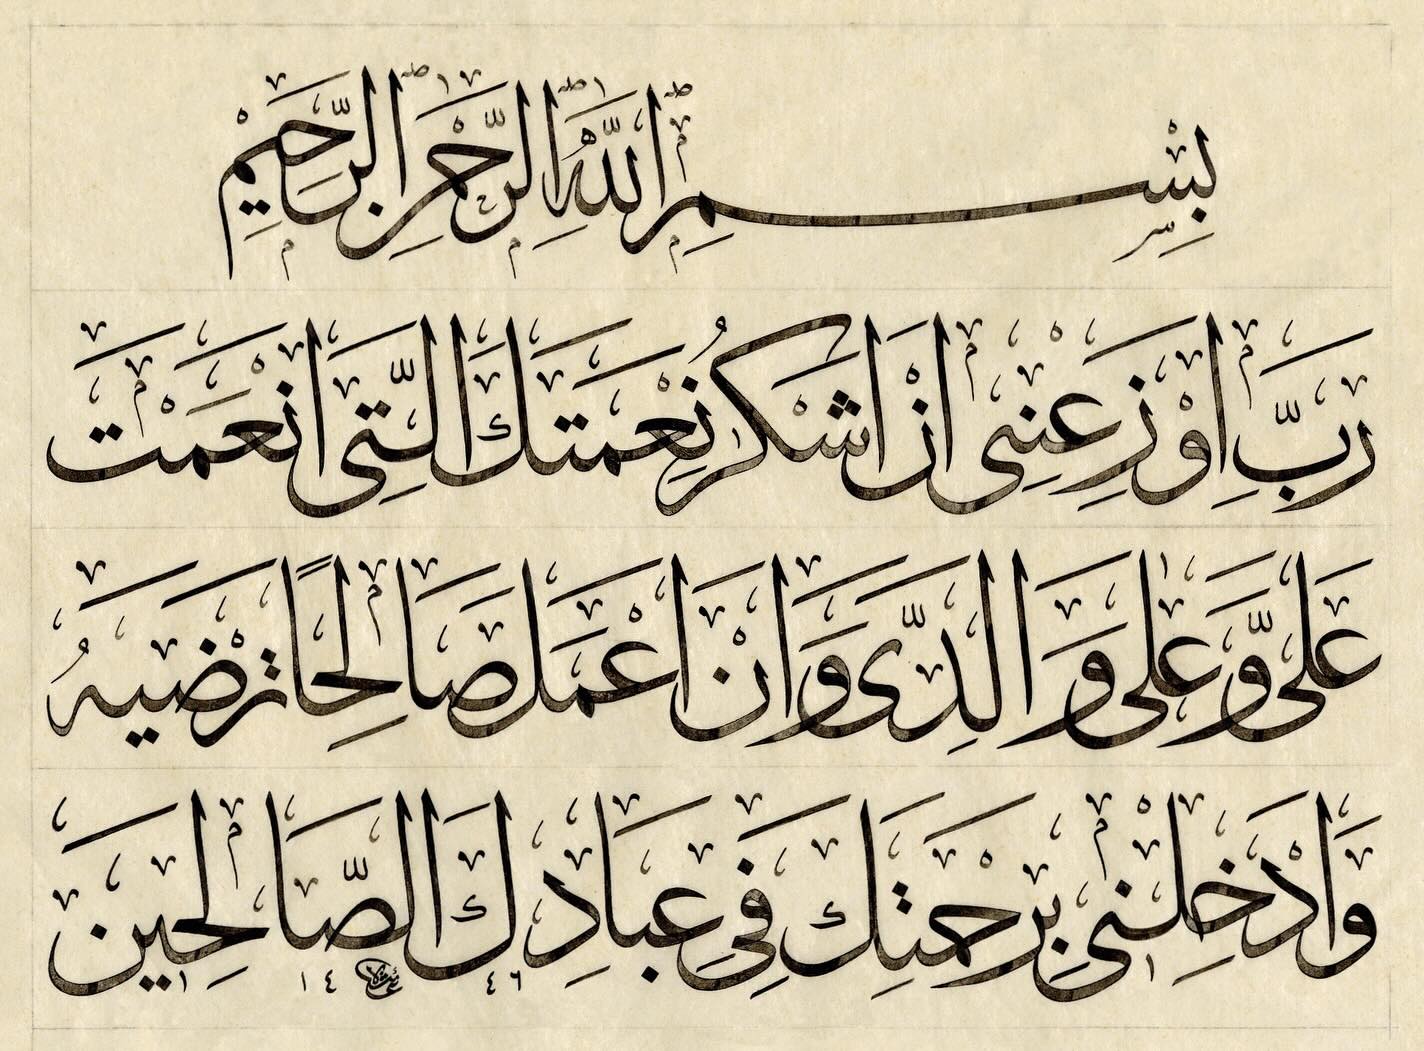 بِسْمِ اللّٰهِ الرَّحْمٰنِ الرَّحِيمِ
رَبِّ اَوْزِعْنِى اَنْ اَشْكُرَ نِعْمَتَكَ الَّتِى اَنْعَمْتَ
عَلَىَّ وَعَلٰى وَالِدَىَّ وَاَنْ اَعْمَلَ صَالِحًا تَرْضٰيهُ
وَاَدْخِلْنِى بِرَحْمَتِكَ فِى عِبَادِكَ الصَّالِحِينَ
١٤ ٤٦